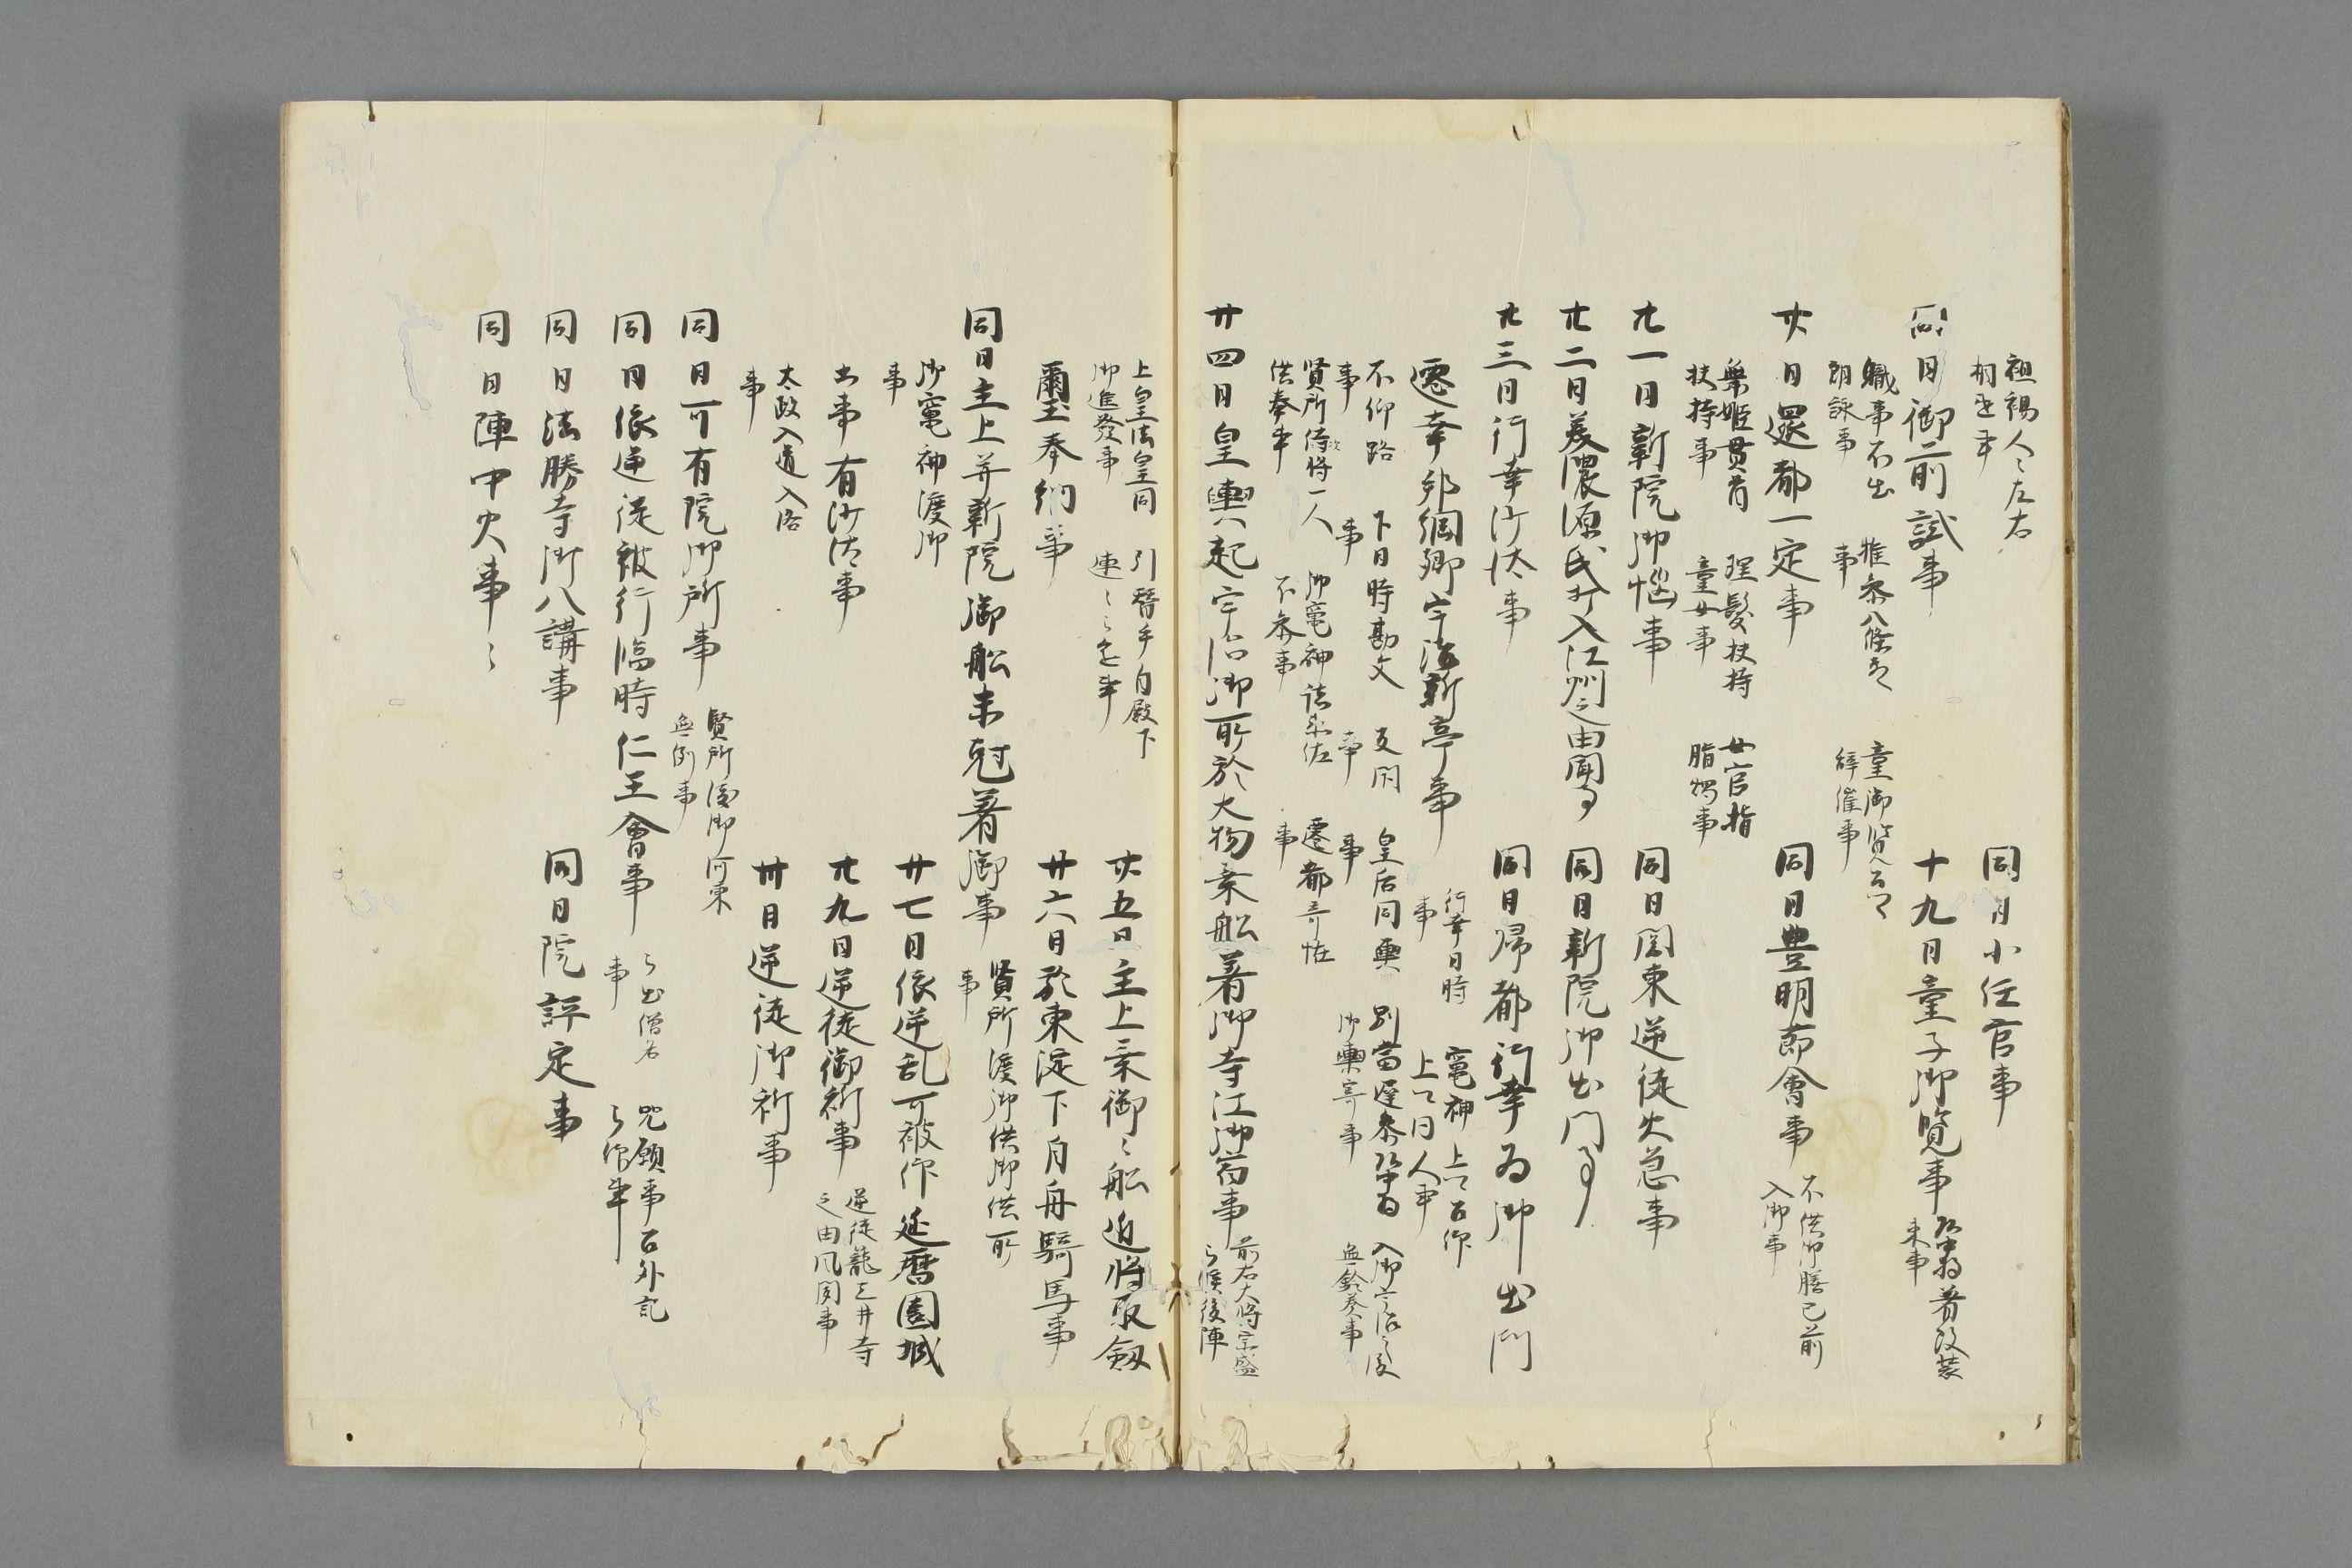 袒裼人々左右
相違事
同日小任官事
同日御前試事
職事不出
朗詠事
推参八條
事
童御覧
辞催事
十九日童子御覧事
着改装
束事
廿日還都一定事
舞姫貫首
扶持事
理髪扶持
童女事
女官指
脂燭事
同日豊明節會事
不供御膳已前
入御事
廿一日新院御悩事
同日関東逆徒火急事
廿二日美濃源氏打入江州之由聞事
同日新院御出門事
廿三日行幸沙汰事
同日帰都行幸為御出門
遷幸邦綱卿宇治新亭事
行幸日時
事
竈神
上日人事
不仰路
事
下日時勘文
事
事
皇后同輿
事
別當遅参
御輿寄事
入御之後
無鈴奏事
賢所侍将一人
供奉事
御竈神
不参事
遷都奇恠
事
廿四日皇輿起宇治御所於大物乗船著御寺江御宿事
前右大将宗盛
候後陣
上皇法皇同
御進發事
引替手自殿下
連々
廿五日主上乗御々船近将取劔
璽奉納事
廿六日於東淀下自舟騎馬事
同日主上并新院御船未剋著御事
賢所渡御供御供所
事
御竈神渡御
事
廿七日依逆乱可被作延暦園城
出事有沙汰事
廿九日逆徒御祈事
逆徒籠三井寺
之由風聞事
太政入道入洛
事
卅日逆徒御祈事
同日可有院御所事
賢所渡御河東
無例事
同日依逆徒被行臨時仁王會事
出僧名
事
呪願事召外記
同日法勝寺御八講事
同日院評定事
同日陣中火事